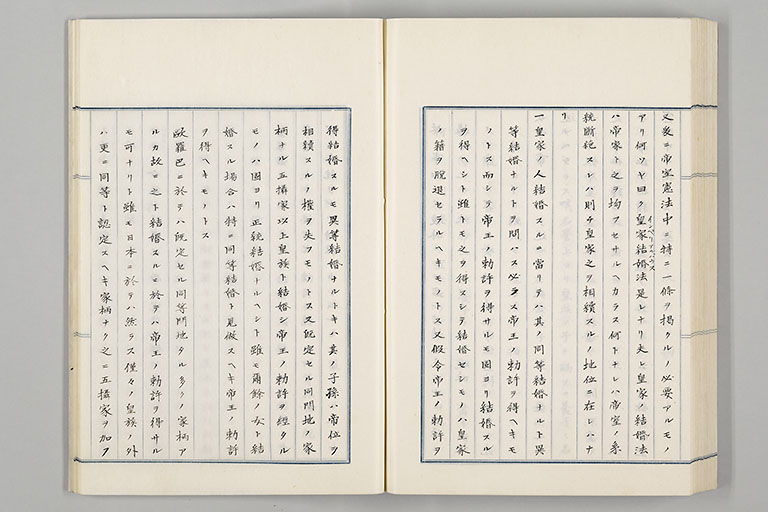 又爰ニ帝室憲法中ニ特ニ一條ヲ掲クルノ必要アルモノ
アリ何ソヤ曰ク皇家結婚法是レナリ夫レ皇家ノ結婚法
インペリアルハウス
ハ帝家ト之ヲ均フセサルヘカラス何トナレハ帝室ノ系
統断絶スレハ則チ皇家之ヲ相續スルノ地位ニ在レハナ
リ
一皇家ノ人結婚スルニ當リテハ其ノ同等結婚ナルト異
等結婚ナルトヲ問ハス必ラス帝王ノ勅許ヲ得ヘキモ
ノトス而シテ帝王ノ勅許ヲ得サルモ固ヨリ結婚スル
ヲ得ヘシト雖トモ之ヲ得スシテ結婚セシモノハ皇家
ノ籍ヲ脱退セラルヘキモノトス又假令帝王ノ勅許ヲ
得結婚スルモ異等結婚ナルトキハ其ノ子孫ハ帝位ヲ
相續スルノ權ヲ失フモノトス又既定セル同門地ノ家
柄ナル五攝家以上皇族ト結婚シ帝王ノ勅許ヲ經タル
モノハ固ヨリ正統結婚ナルヘシト雖モ爾餘ノ女ト結
婚スル場合ハ特ニ同等結婚ト見做スヘキ帝王ノ勅許
ヲ得ヘキモノトス
歐羅巴ニ於テハ既定セル同等門地タル多クノ家柄ア
ルカ故ニ之ト結婚スルニ於テハ帝王ノ勅許ヲ得サル
モ可ナリト雖モ日本ニ於テハ然ラス僅々ノ皇族ノ外
ハ更ニ同等ト認定スヘキ家柄ナク之ニ五攝家ヲ加フ